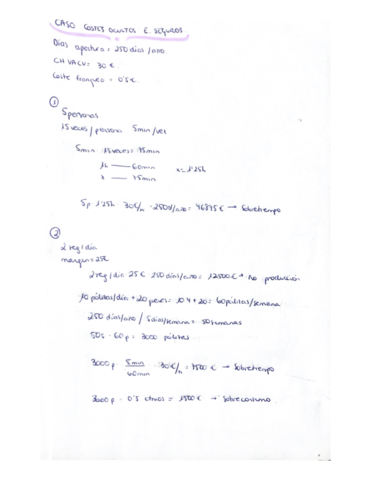 CASO COSTES OCULTOS E. SEGUROS
Días apertura = 250 días/año
CHMCV = 30 €
Coste franqueo = 0'5 €
①
5 personas
15 veces/persona 5min/vez
5min · 15 veces = 75min
1h — 60min x = 1'25h
x — 75min
5p · 1'25h · 30€/h · 250d/año = 46875 € → Sobretiempo
②
2 reg/día
margen = 25€
2 reg/día · 25 € · 250 días/año = 12500 € → no producción
10 pólizas/día + 20 = 10·4 + 20 = 60 pólizas/semana
250 días/año / 5 días/semana = 50 semanas
50s · 60p = 3000 pólizas
3000 p · 5min/60min · 30€/h = 7500 € → Sobretiempo
3000 p · 0'5 = 1500 € → Sobreconsumo